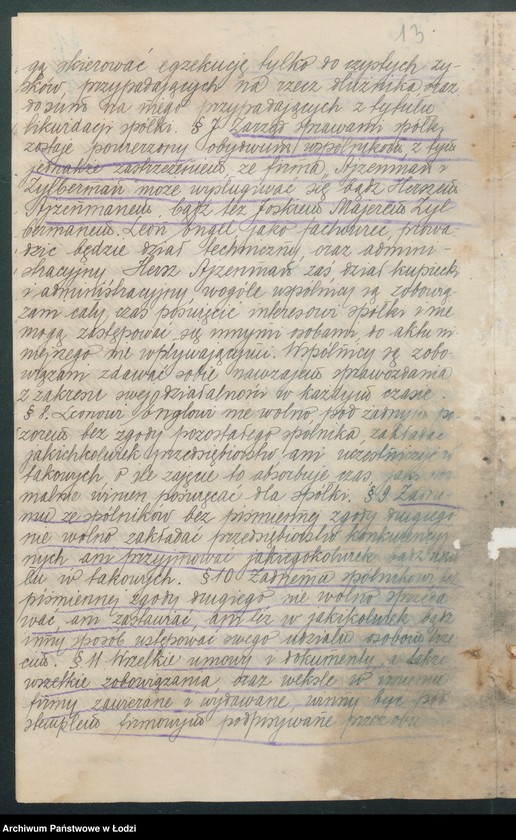 13
gą skierować egzekucję tylko do czystych zy-
sków, przypadających na rzecz dłużnika oraz
do sum na niego przypadających z tytułu
likwidacji spółki. § 7 Zarząd sprawami spółki
zostaje powierzony obydwum wspólnikom z tym
jednakże zastrzeżeniem ze firma "Ajzenman i
Zylberman" może wysługiwać się bądź Herszem
Ajzenmanem, bądź też Joskiem Majerem Zyl-
bermanem. Leon Engel jako fachowiec prowa-
dzić będzie dział techniczny oraz admini-
stracyjny Hersz Ajzenman zaś dział kupiecki
i administracyjny wogóle wspólnicy są zobowią-
zani cały czas poświęcić interesowi spółki i nie
mogą zastępować się innymi osobami, do aktu ni-
niejszego nie wpływającymi. Wspólnicy są zobo-
wiązani zdawać sobie nawzajem sprawozdania
z zakresu swej działalności w każdym czasie.
§ 8. Leonowi Englowi nie wolno pod żadnym po-
zorem bez zgody pozostałego spólnika, zakładać
jakichkolwiek przedsiębiorstw ani uczestniczyć w
takowych, o ile zajęcie to absorbuje czas, jaki nor-
malnie winien poświęcać dla spółki. § 9 Żadne-
mu ze spólników bez piśmiennej zgody drugiego
nie wolno zakładać przedsiębiorstw konkurencyj-
nych ani przyjmować jakiegokolwiek bądź udzia-
łu w takowych. § 10 Żadnemu spólnikowi bez
piśmiennej zgody drugiego nie wolno sprzeda-
wać, ani zastawiać, ani też w jakikolwiek bądź
inny sposób ustępować swego udziału osobom trze-
cim. § 11 Wszelkie umowy i dokumenty, a także
wszelkie zobowiązania oraz weksle w imieniu
firmy zawierane i wydawane, winny być pod
stemplem firmowym podpisywane przez obu
Archiwum Państwowe w Łodzi